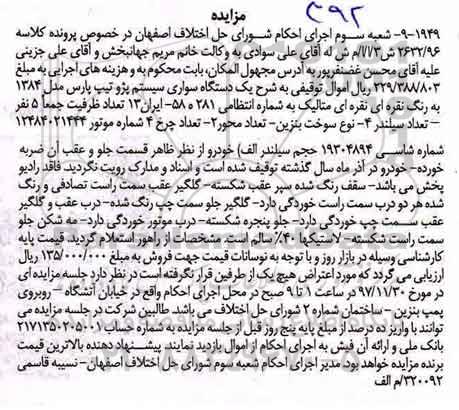 مزایده ۳۹۲
۹-۱۹۴۹- شعبه سوم اجرای احکام شورای حل اختلاف اصفهان در خصوص پرونده کلاسه
۲۶۳۲/۹۶ ش۳/ا/ا له آقای علی سوادی به وکالت خانم مریم جهانبخش و آقای علی جزینی
علیه آقای محسن غضنفرپور به آدرس مجهول المکان، بابت محکوم به و هزینه های اجرایی به مبلغ
۲۳۹/۳۸۸/۸۰۳ ریال اموال توقیفی به شرح یک دستگاه سواری سیستم پژو تیپ پارس مدل ۱۳۸۴
به رنگ نقره ای نقره ای متالیک به شماره انتظامی ۲۸۱ ه ۵۸- ایران۱۳ تعداد ظرفیت جمعاً ۵ نفر
– تعداد سیلندر ۴- نوع سوخت بنزین- تعداد محور۲- تعداد چرخ ۴ شماره موتور ۱۲۴۸۴۰۲۱۴۴۴
شماره شاسی ۱۹۳۰۴۸۹۴ حجم سیلندر الف) خودرو از نظر ظاهر قسمت جلو و عقب آن ضربه
خورده- خودرو در آذر ماه سال گذشته توقیف شده است و اسناد و مدارک رویت نگردید. فاقد رادیو
پخش می باشد- سقف رنگ شده سپر عقب شکسته- گلگیر عقب سمت راست تصادفی و رنگ
شده هر دو درب سمت راست خوردگی دارد- گلگیر جلو سمت چپ رنگ شده- درب عقب و گلگیر
عقب سمت چپ خوردگی دارد- جلو پنجره شکسته- درب موتور خوردگی دارد- مه شکن جلو
سمت راست شکسته- لاستیکها ۴۰٪ سالم است. مشخصات از راهور استعلام گردید. قیمت پایه
کارشناسی وسیله در بازار روز و با توجه به نوسانات قیمت جهت فروش به مبلغ ۱۳۵/۰۰۰/۰۰۰ ریال
ارزیابی می گردد که مورد اعتراض هیچ یک از طرفین قرار نگرفته است در نظر دارد جلسه مزایده ای
در مورخ ۹۷/۱۱/۳۰ در ساعت ۹ تا ۱ صبح در محل اجرای احکام واقع در خیابان آتشگاه – روبروی
پمپ بنزین – ساختمان شماره ۲ شورای حل اختلاف می باشد. طالبین شرکت در جلسه مزایده می
توانند با واریز ده درصد از مبلغ پایه پنج روز قبل از جلسه مزایده به شماره حساب ۲۱۷۱۳۵۰۲۰۵۰۰۱
بانک ملی و ارائه آن فیش به اجرای احکام از اموال بازدید نمایند. پیشنهاد دهنده بالاترین قیمت
برنده مزایده خواهد بود. مدیر اجرای احکام شعبه سوم شورای حل اختلاف اصفهان- نسیبه قاسمی
۳۲۰۰۹۲/م الف